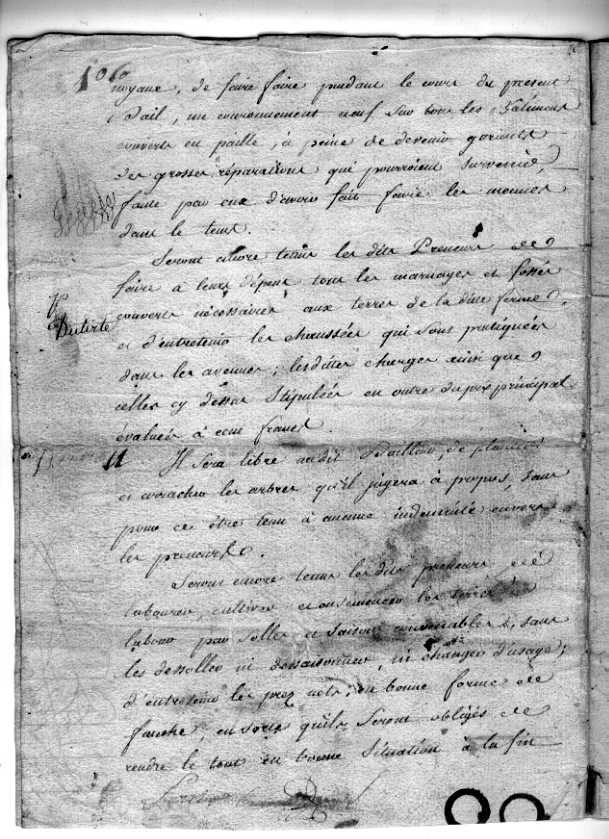 10°
noyaux, de faire faire pendant le cours du present
Bail, un couvrement neuf sur tous les Batimens
couverts en paille, à peine de devenir garants
des grosses réparations qui pourroient survenir,
faute par eux d'avoir fait faire les memes
dans le tems.
Seront encore tenus les dits Preneurs de
faire à leurs dépens tous les marnages et fossés
couverts nécessaires aux terres de la dite ferme,
et d'entretenir les chaussées qui sont pratiquées
dans les avenues; lesdittes charges ainsi que
celles cy dessus stipulées en outre du prix principal
évaluées à cent francs.
11 Il sera libre audit Bailleur, de planter
et arracher les arbres qu'il jugera à propos, sans
pour ce être tenu à aucune indemnité envers
les preneurs.
Seront encore tenus lesdits preneurs de
labourer, cultiver et ensemencer les terres
labour par solles et saisons convenables, sans
les dessoller ni dessaisonner, ni changer d'usage;
d'entretenir les prez nets, en bonne forme de
fauche, en sorte qu'ils seront obligés de
rendre le tout en bonne situation à la fin